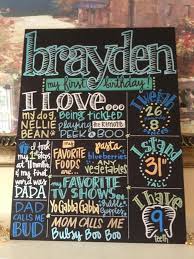 brayden
my first birthday
I LOVE...
my dog,
NELLIE
BEAN
being tickled
playing
REMOTE
PEEK-A-BOO
I weigh
26
I took my
1st steps
at 11 months
my first
word was
DADA
my
FAVORITE
FOODS
are...
pasta
blueberries
ANY
VEGETABLES
I stand
31"
Tall
my FAVORITE
SHOWS
Yo Gabba Gabba
Bubble
Guppies
DAD
CALLS ME
BUD
MOM CALLS ME
Bubby Boo Boo
I have
9
teeth